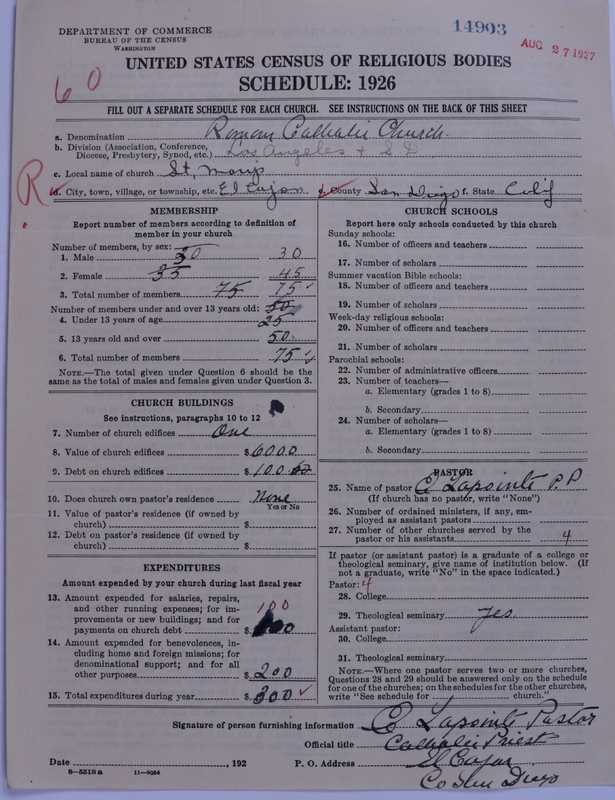 DEPARTMENT OF COMMERCE
BUREAU OF THE CENSUS
WASHINGTON
14903
AUG 27 1927
60
UNITED STATES CENSUS OF RELIGIOUS BODIES
SCHEDULE: 1926
FILL OUT A SEPARATE SCHEDULE FOR EACH CHURCH. SEE INSTRUCTIONS ON THE BACK OF THIS SHEET
a. Denomination Roman Catholic Church
b. Division (Association, Conference, Diocese, Presbytery, Synod, etc.) Los Angeles & S D
c. Local name of church St, Marys
R
d. City, town, village, or township, etc. El Cajon e. County San Diego f. State Calif
MEMBERSHIP
Report number of members according to definition of
member in your church
Number of members, by sex:
1. Male 30 30
2. Female 35 45
3. Total number of members 75 75
Number of members under and over 13 years old: 50
4. Under 13 years of age 25
5. 13 years old and over 50
6. Total number of members 75
NOTE.—The total given under Question 6 should be
same as the total of males and females given under Question 3.
CHURCH BUILDINGS
See instructions, paragraphs 10 to 12
7. Number of church edifices One
8. Value of church edifices $ 6000
9. Debt on church edifices $ 100
10. Does church own pastor's residence None
Yes or No
11. Value of pastor's residence (if owned by
church) $
12. Debt on pastor's residence (if owned by
church) $
EXPENDITURES
Amount expended by your church during last fiscal year
13. Amount expended for salaries, repairs,
and other running expenses; for im-
provements or new buildings; and for
payments on church debt $ 100
14. Amount expended for benevolences, in-
cluding home and foreign missions; for
denominational support; and for all
other purposes $ 200
15. Total expenditures during year $ 300
CHURCH SCHOOLS
Report here only schools conducted by this church
Sunday schools:
16. Number of officers and teachers
17. Number of scholars
Summer vacation Bible schools:
18. Number of officers and teachers
19. Number of scholars
Week-day religious schools:
20. Number of officers and teachers
21. Number of scholars
Parochial schools:
22. Number of administrative officers
23. Number of teachers—
a. Elementary (grades 1 to 8)
b. Secondary
24. Number of scholars—
a. Elementary (grades 1 to 8)
b. Secondary
PASTOR
25. Name of pastor C Lapointe P.P
(If church has no pastor, write "None")
26. Number of ordained ministers, if any, em-
ployed as assistant pastors
27. Number of other churches served by the
pastor or his assistants 4
If pastor (or assistant pastor) is a graduate of a college or
theological seminary, give name of institution below. (If
not a graduate, write "No" in the space indicated.)
Pastor: 4
28. College
29. Theological seminary yes
Assistant pastor:
30. College
31. Theological seminary
NOTE.—Where one pastor serves two or more churches,
Questions 28 and 29 should be answered only on the schedule
for one of the churches; on the schedules for the other churches,
write "See schedule for church."
Signature of person furnishing information C Lapointe Pastor
Official title Catholic Priest
Date , 192 P. O. Address El Cajon
8—5518 a 11—9064
Co San Diego